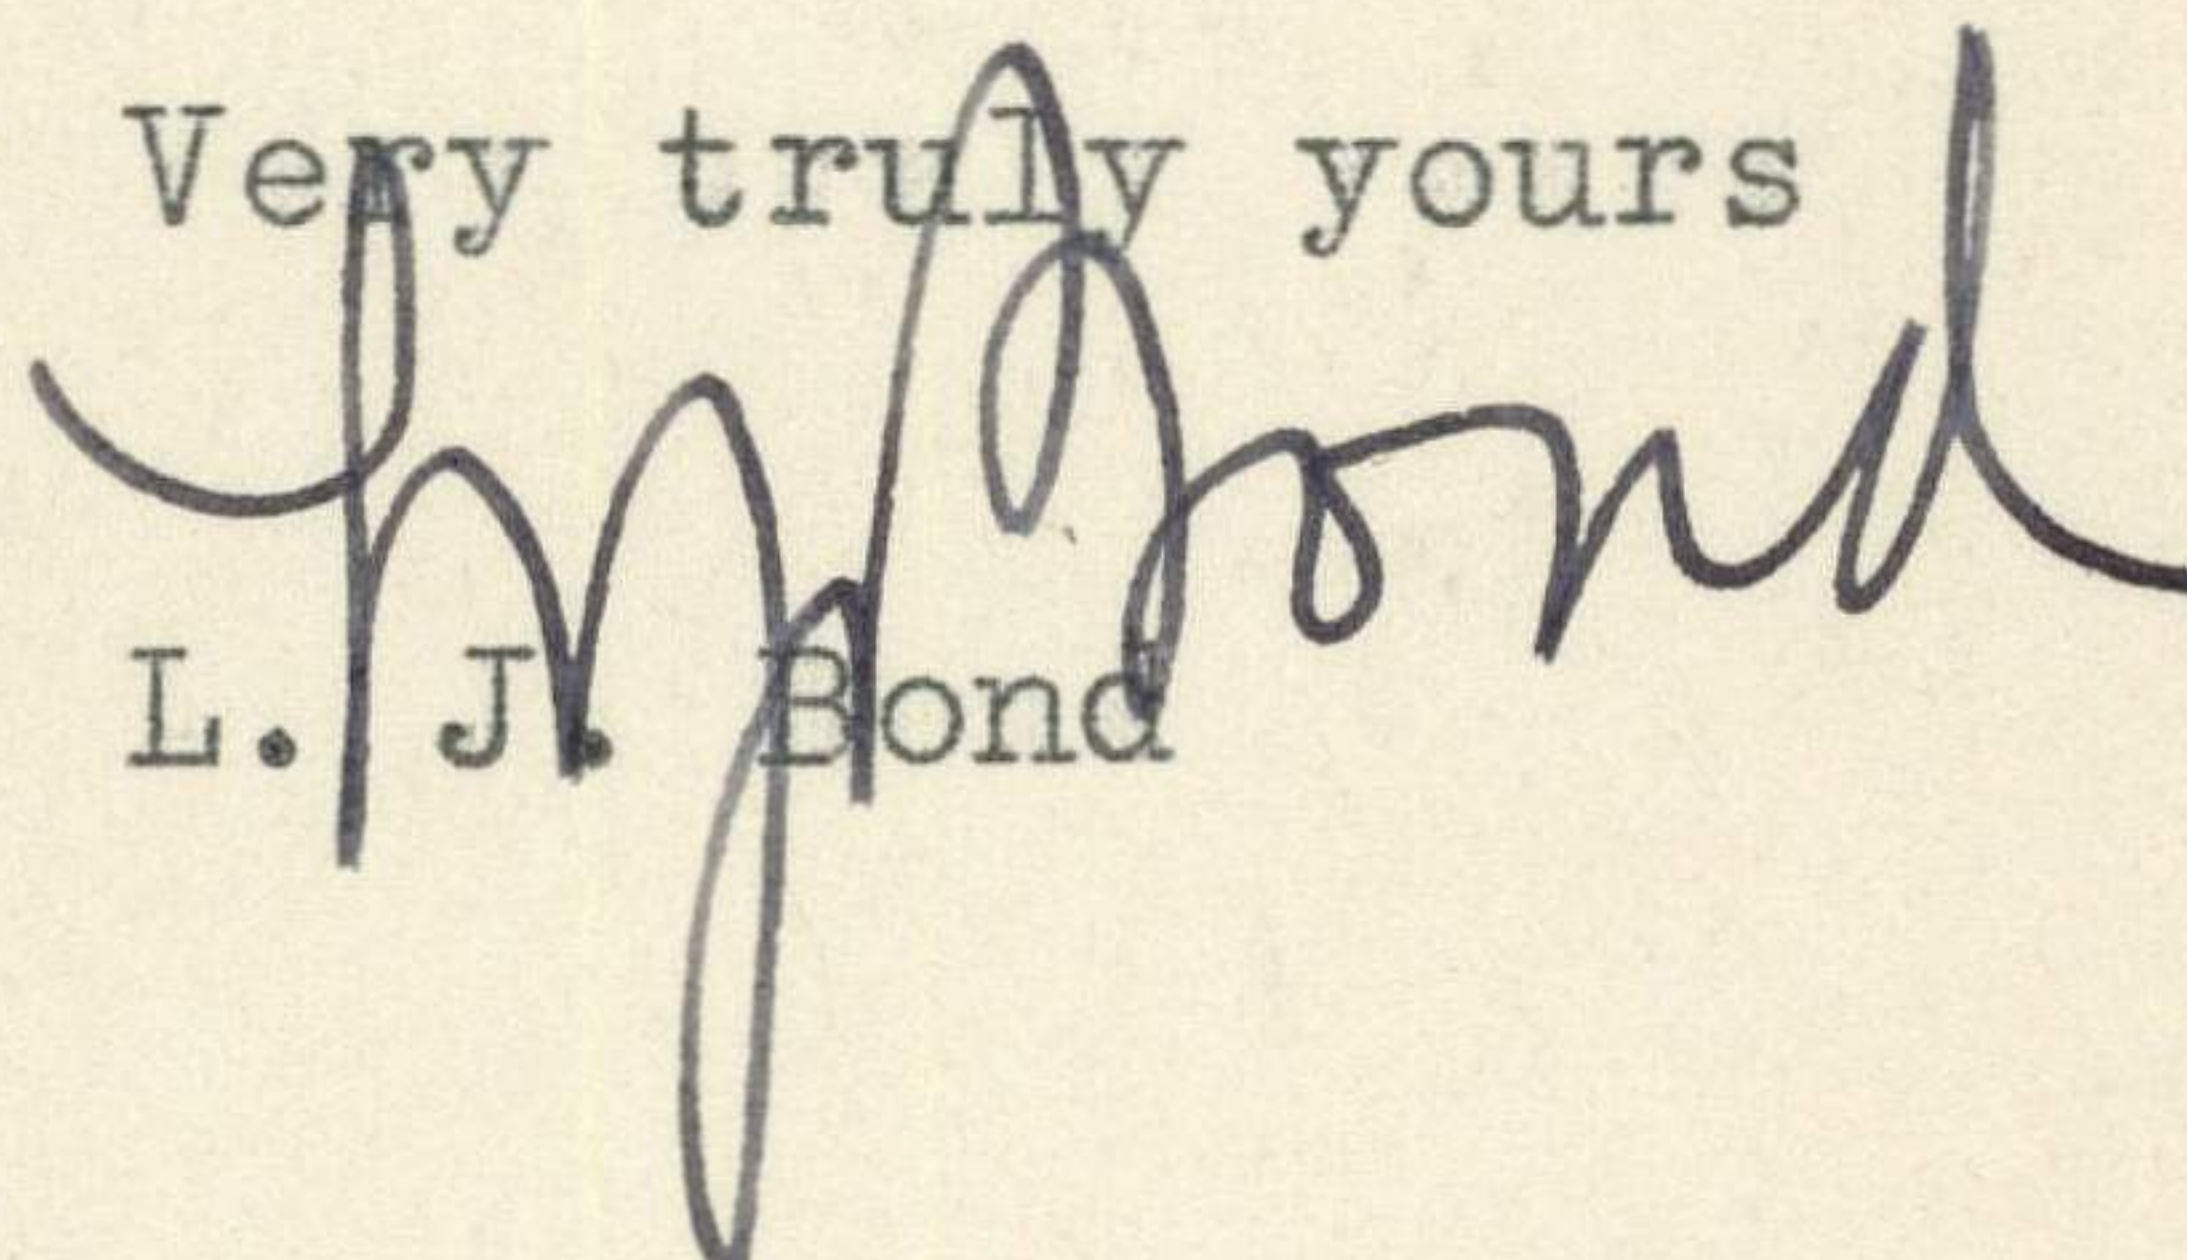 Very truly yours
L J Bond
L. J. Bond